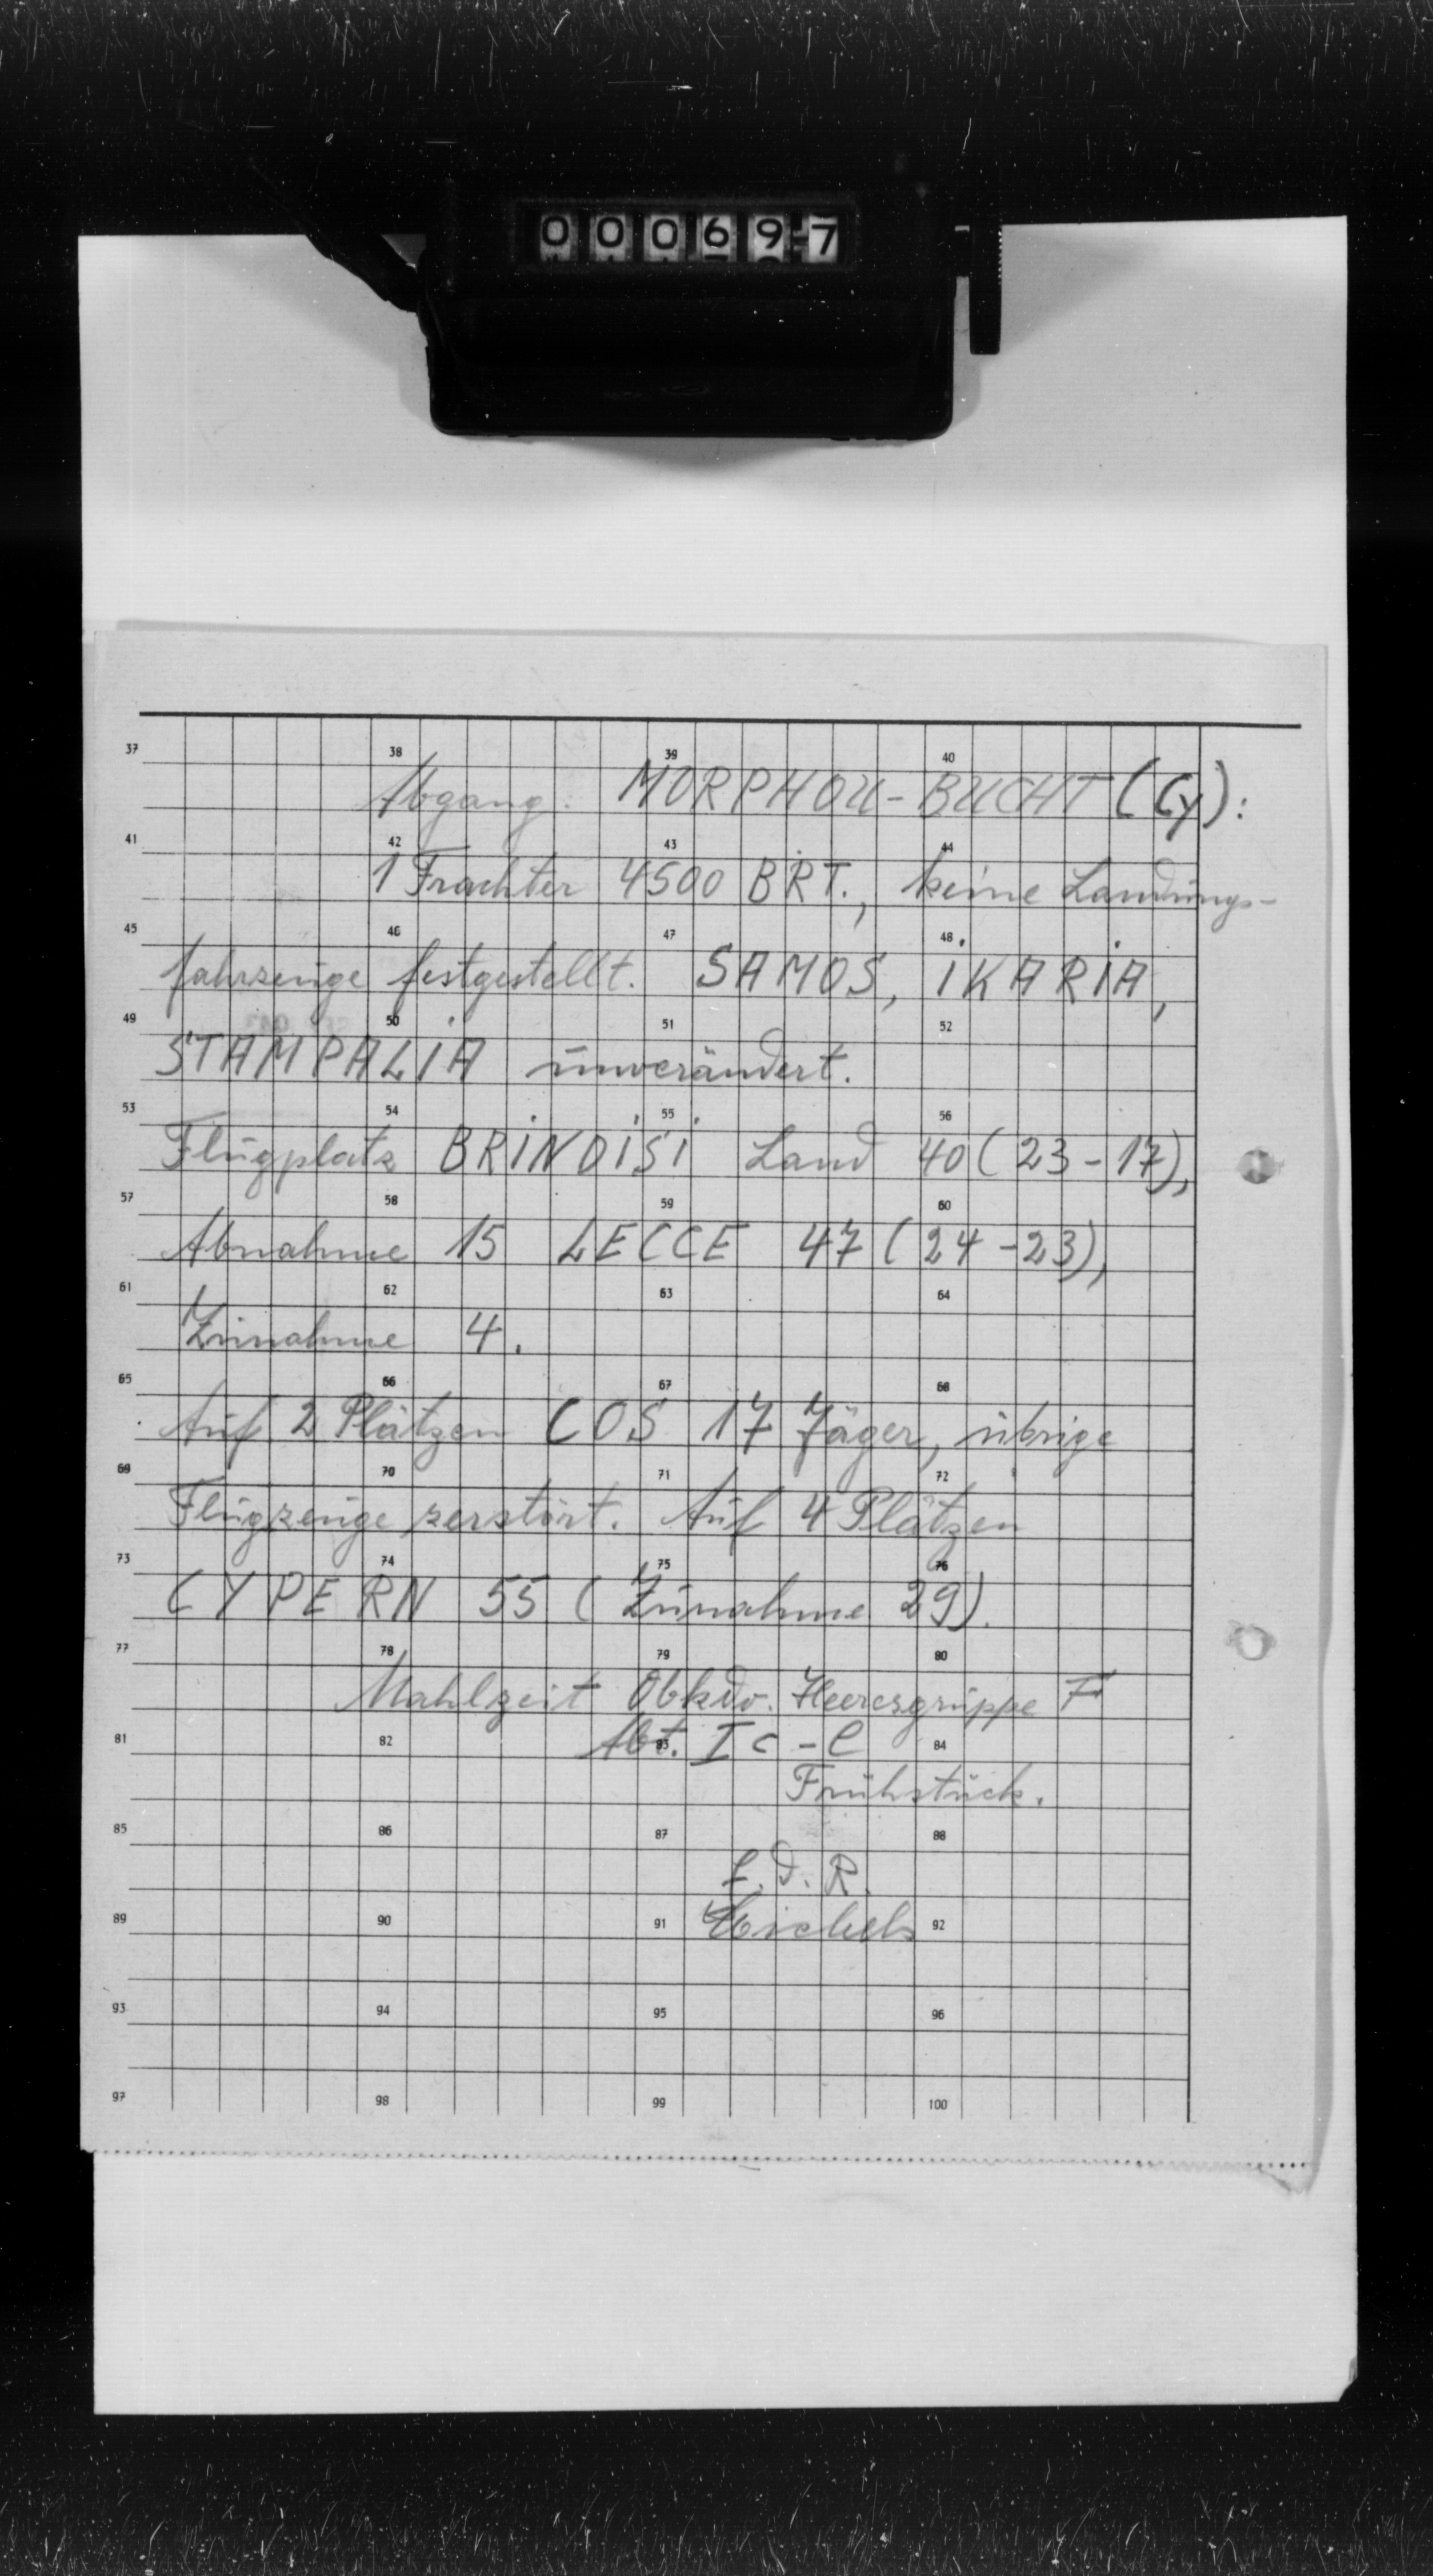 000697
37 38 39 40
Abgang: MORPHOU-BUCHT (Cy):
41 42 43 44
1 Frachter 4500 BRT., keine Landungs-
45 46 47 48
fahrzeuge festgestellt. SAMOS, IKARIA,
49 50 51 52
STAMPALIA unverändert.
53 54 55 56
Flugplatz BRINDISI Land 40 (23-17),
57 58 59 60
Abnahme 15 LECCE 47 (24-23),
61 62 63 64
Zunahme 4.
65 66 67 68
Auf 2 Plätzen COS 17 Jäger, übrige
69 70 71 72
Flugzeuge zerstört. Auf 4 Plätzen
73 74 75 76
CYPERN 55 (Zunahme 29).
77 78 79 80
Mahlzeit Obkdo. Heeresgruppe F
81 82 83 84
Abt. Ic-
Frühstück.
85 86 87 88
F.d.R.
89 90 91 92
93 94 95 96
97 98 99 100